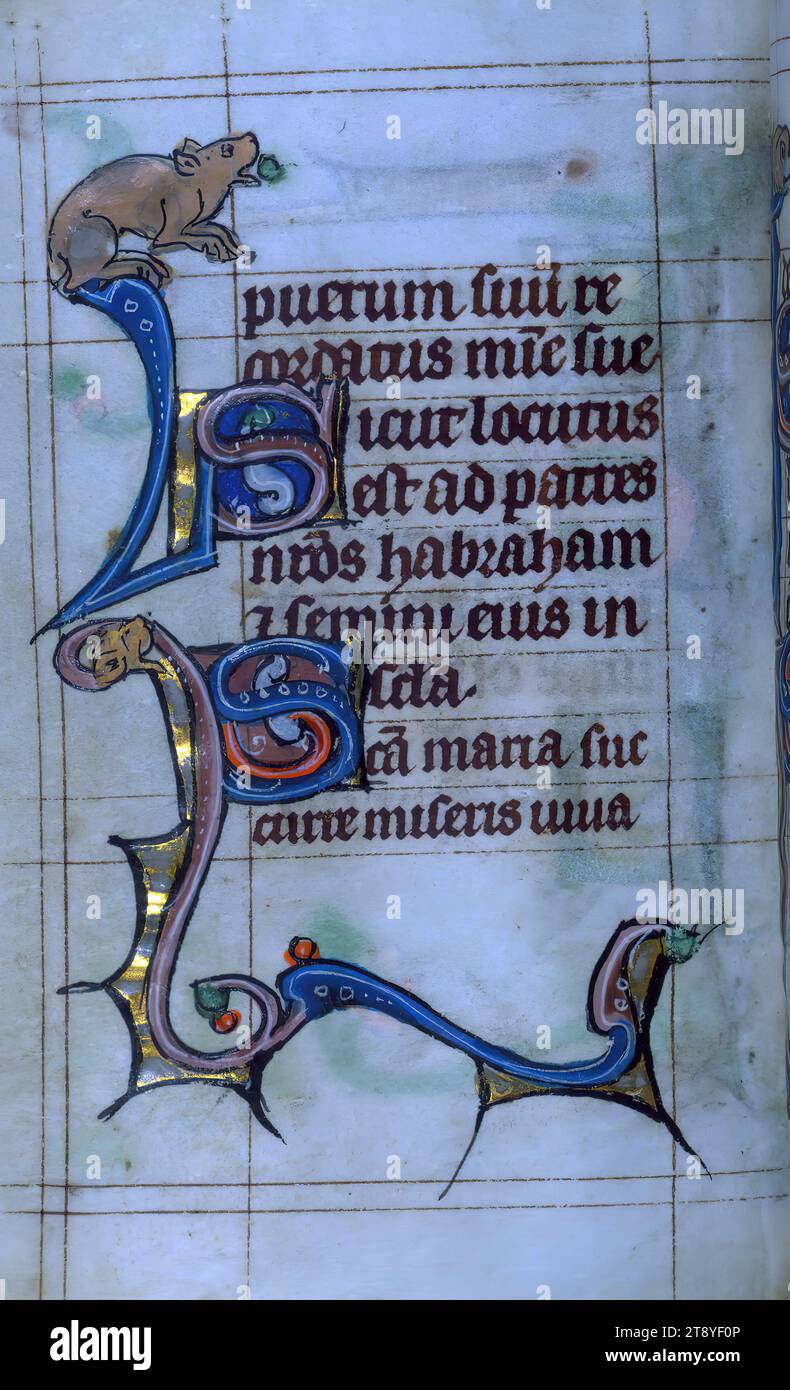 puerum suū re
cordatus mīe sue
Sicut locutus
est ad patres
nrōs habraham
⁊ semini eius in
scła.
Scā maria suc
curre miseris iuua
alamy
Image ID: 2T8YF0P
www.alamy.com